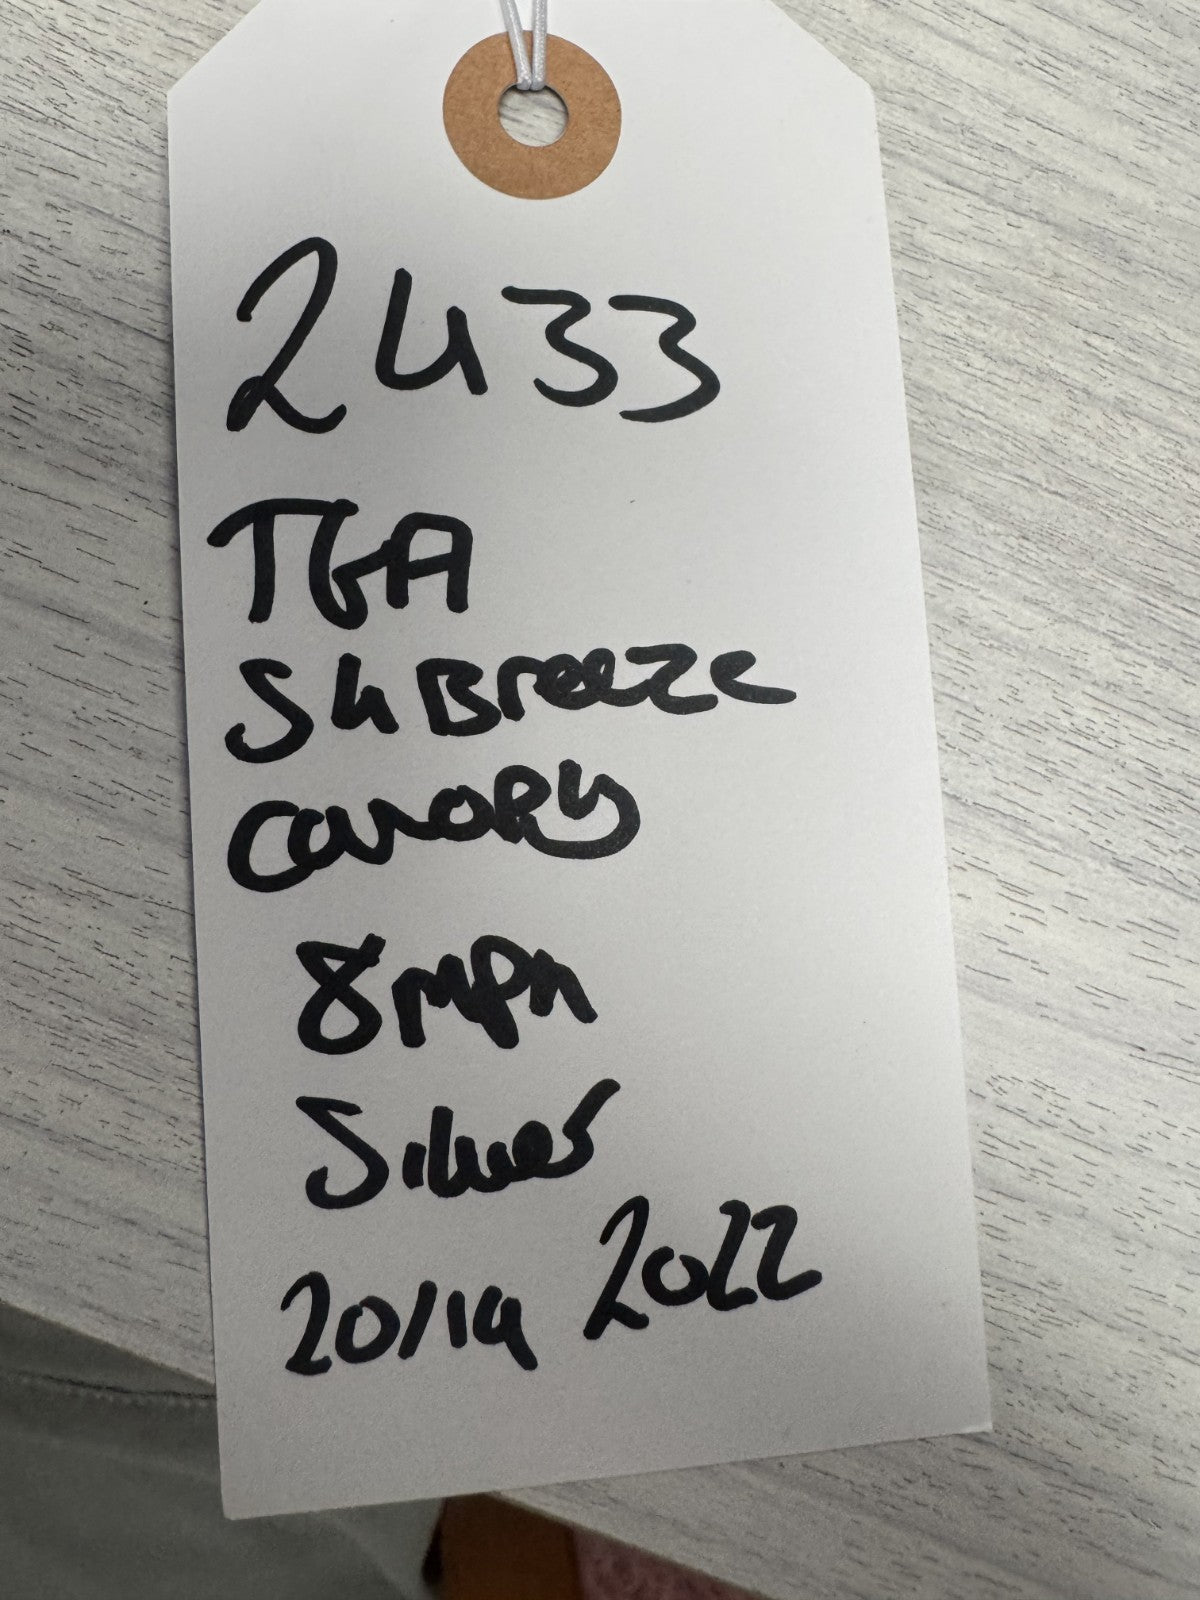 2433
TGA
S4 Breeze
Canopy
8mph
Silver
20/19 2022